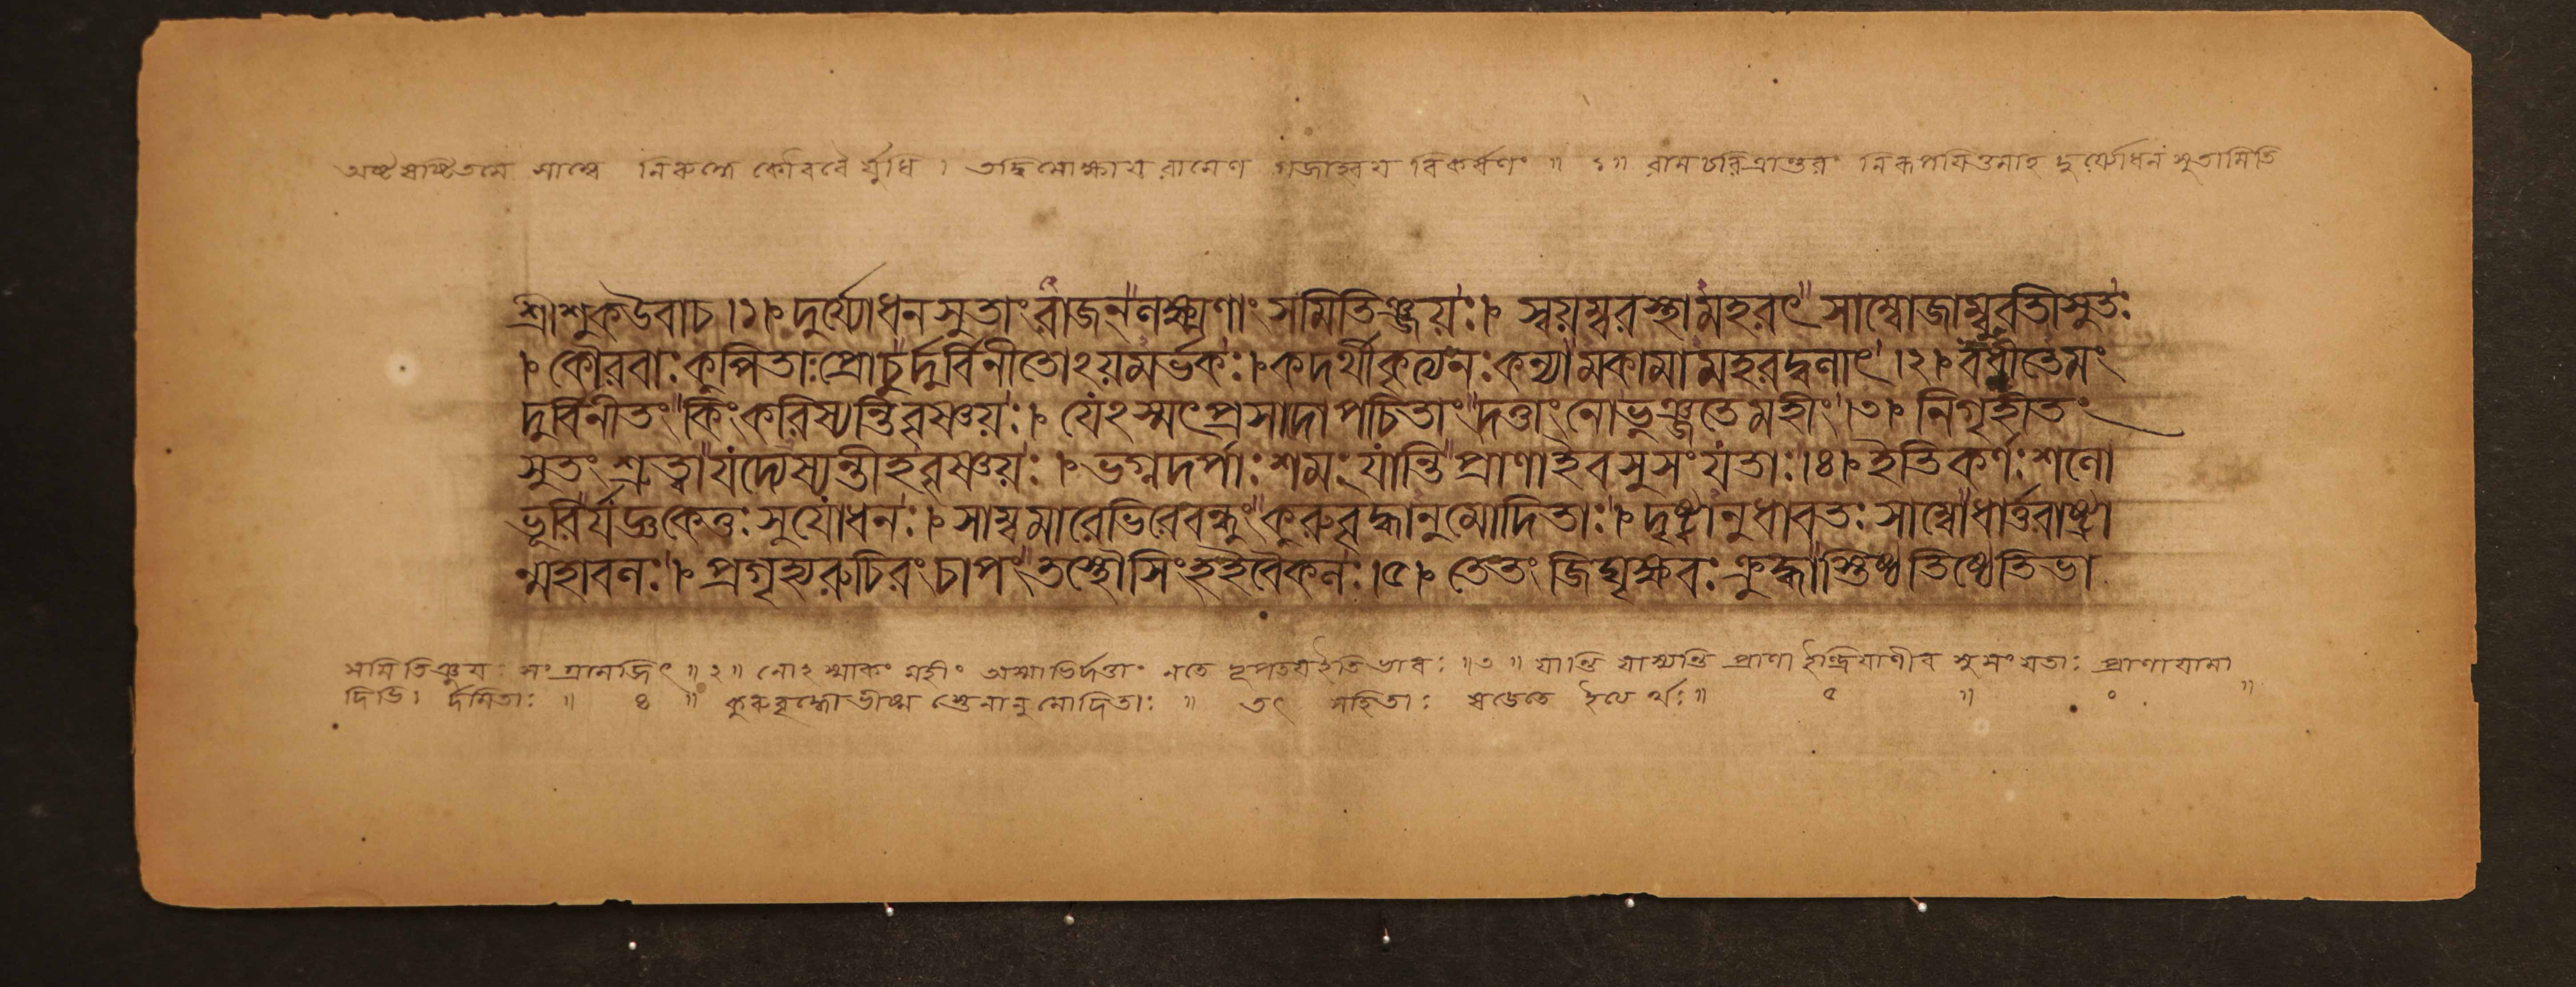 অষ্টষষ্টিতমে সাম্বে নিরুদ্ধে কৌরবৈর্যুধি । তদ্বিমোক্ষায় রামেণ গজাহ্বয় বিকর্ষণং ॥ ১॥ রামচরিত্রান্তরং নিরূপযিতুমাহ দুর্য্যোধনসুতামিতি
শ্রীশুকউবাচ ।১। দুর্য্যোধনসুতাং রাজন্ লক্ষ্মণাং সমিতিঞ্জয়ঃ । স্বয়ম্বরস্থামহরৎ সাম্বোজাম্ববতীসুতঃ
। কৌরবাঃ কুপিতাঃপ্রোচুর্দুর্বিনীতোঽয়মর্ভকঃ । কদর্থীকৃত্যনঃ কন্যামকামামহরদ্বলাৎ ।২। বধ্নীতেমং
দুর্বিনীতং কিং করিষ্যন্তি বৃষ্ণয়ঃ । যেঽস্মৎপ্রসাদোপচিতাং দত্তাং নোভুঞ্জতে মহীং ।৩। নিগৃহীতং
সুতং শ্রুত্বা যদ্যেষ্যন্তীহ বৃষ্ণয়ঃ । ভগ্নদর্পাঃ শমং যান্তি প্রাণাইব সুসংযতাঃ ।৪। ইতি কর্ণঃ শলো
ভূরির্যজ্ঞকেতুঃ সুযোধনঃ । সাম্বমারেভিরেবন্ধুং কুরুবৃদ্ধানুমোদিতাঃ । দৃষ্ট্বানুধাবতঃ সাম্বোধার্ত্তরাষ্ট্রা
ন্মহাবলঃ । প্রগৃহ্যরুচিরং চাপং তস্থৌসিংহইবৈকলঃ ।৫। তেতং জিঘৃক্ষবঃ ক্রুদ্ধাস্তিষ্ঠতিষ্ঠেতিভা
সমিতিঞ্জয়ঃ সংগ্রামজিৎ ॥২॥ নোঽস্মাকং মহীং অস্মাভির্দত্তাং নতে নৃপতয়ইতিভাবঃ ॥৩॥ যান্তি যাস্যন্তি প্রাণা ইন্দ্রিয়াণীব সুসংযতাঃ প্রাণায়ামা
দিভি। র্দমিতাঃ ॥ ৪ ॥ কুরুবৃদ্ধোভীষ্ম স্তেনানুমোদিতাঃ ॥ তৎ সহিতাঃ ষডেতে ইত্যর্থঃ॥ ৫ ॥ ॰ ॥